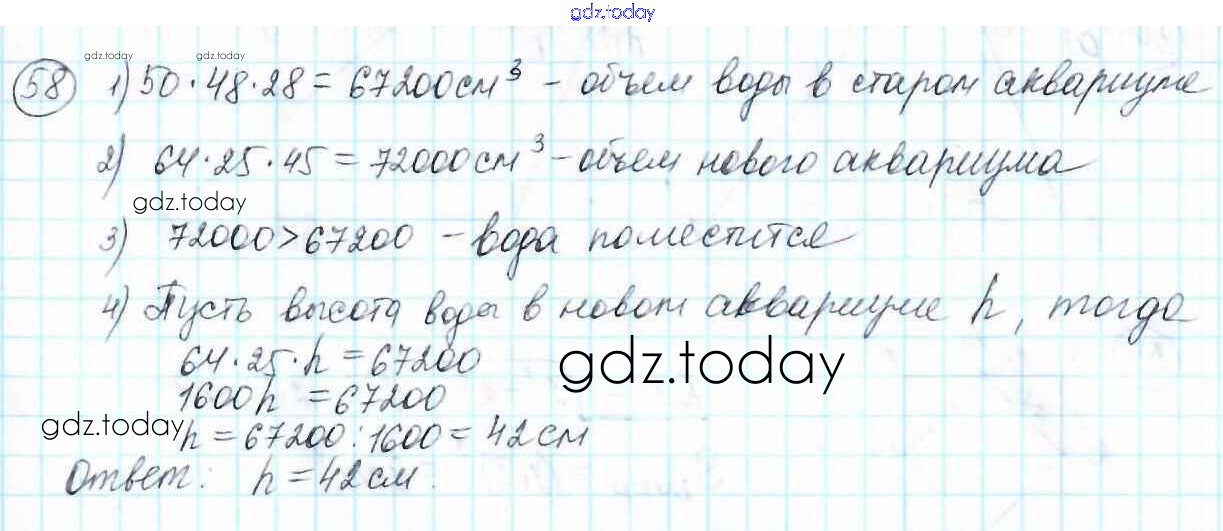 gdz.today
gdz.today gdz.today
58 1) 50·48·28 = 67200 см³ - объем воды в старом аквариуме
2) 64·25·45 = 72000 см³ - объем нового аквариума
gdz.today
3) 72000 > 67200 - вода поместится
4) Пусть высота воды в новом аквариуме h, тогда
64·25·h = 67200
gdz.today
1600h = 67200
gdz.today
h = 67200 : 1600 = 42 см
Ответ: h = 42 см.